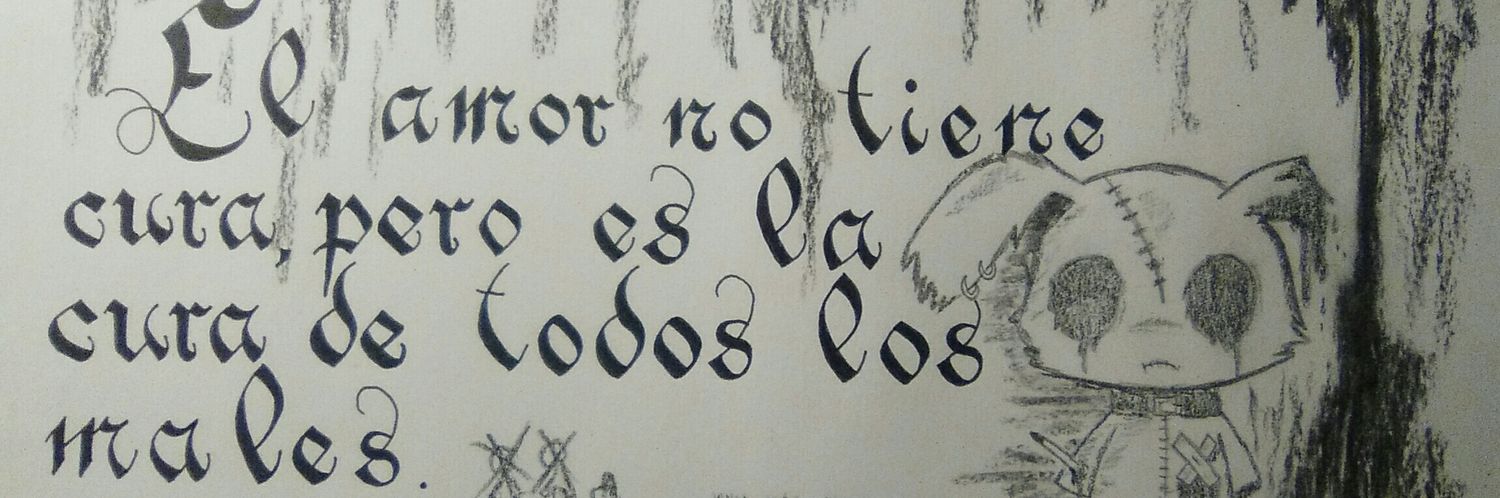 El amor no tiene
cura, pero es la
cura de todos los
males.